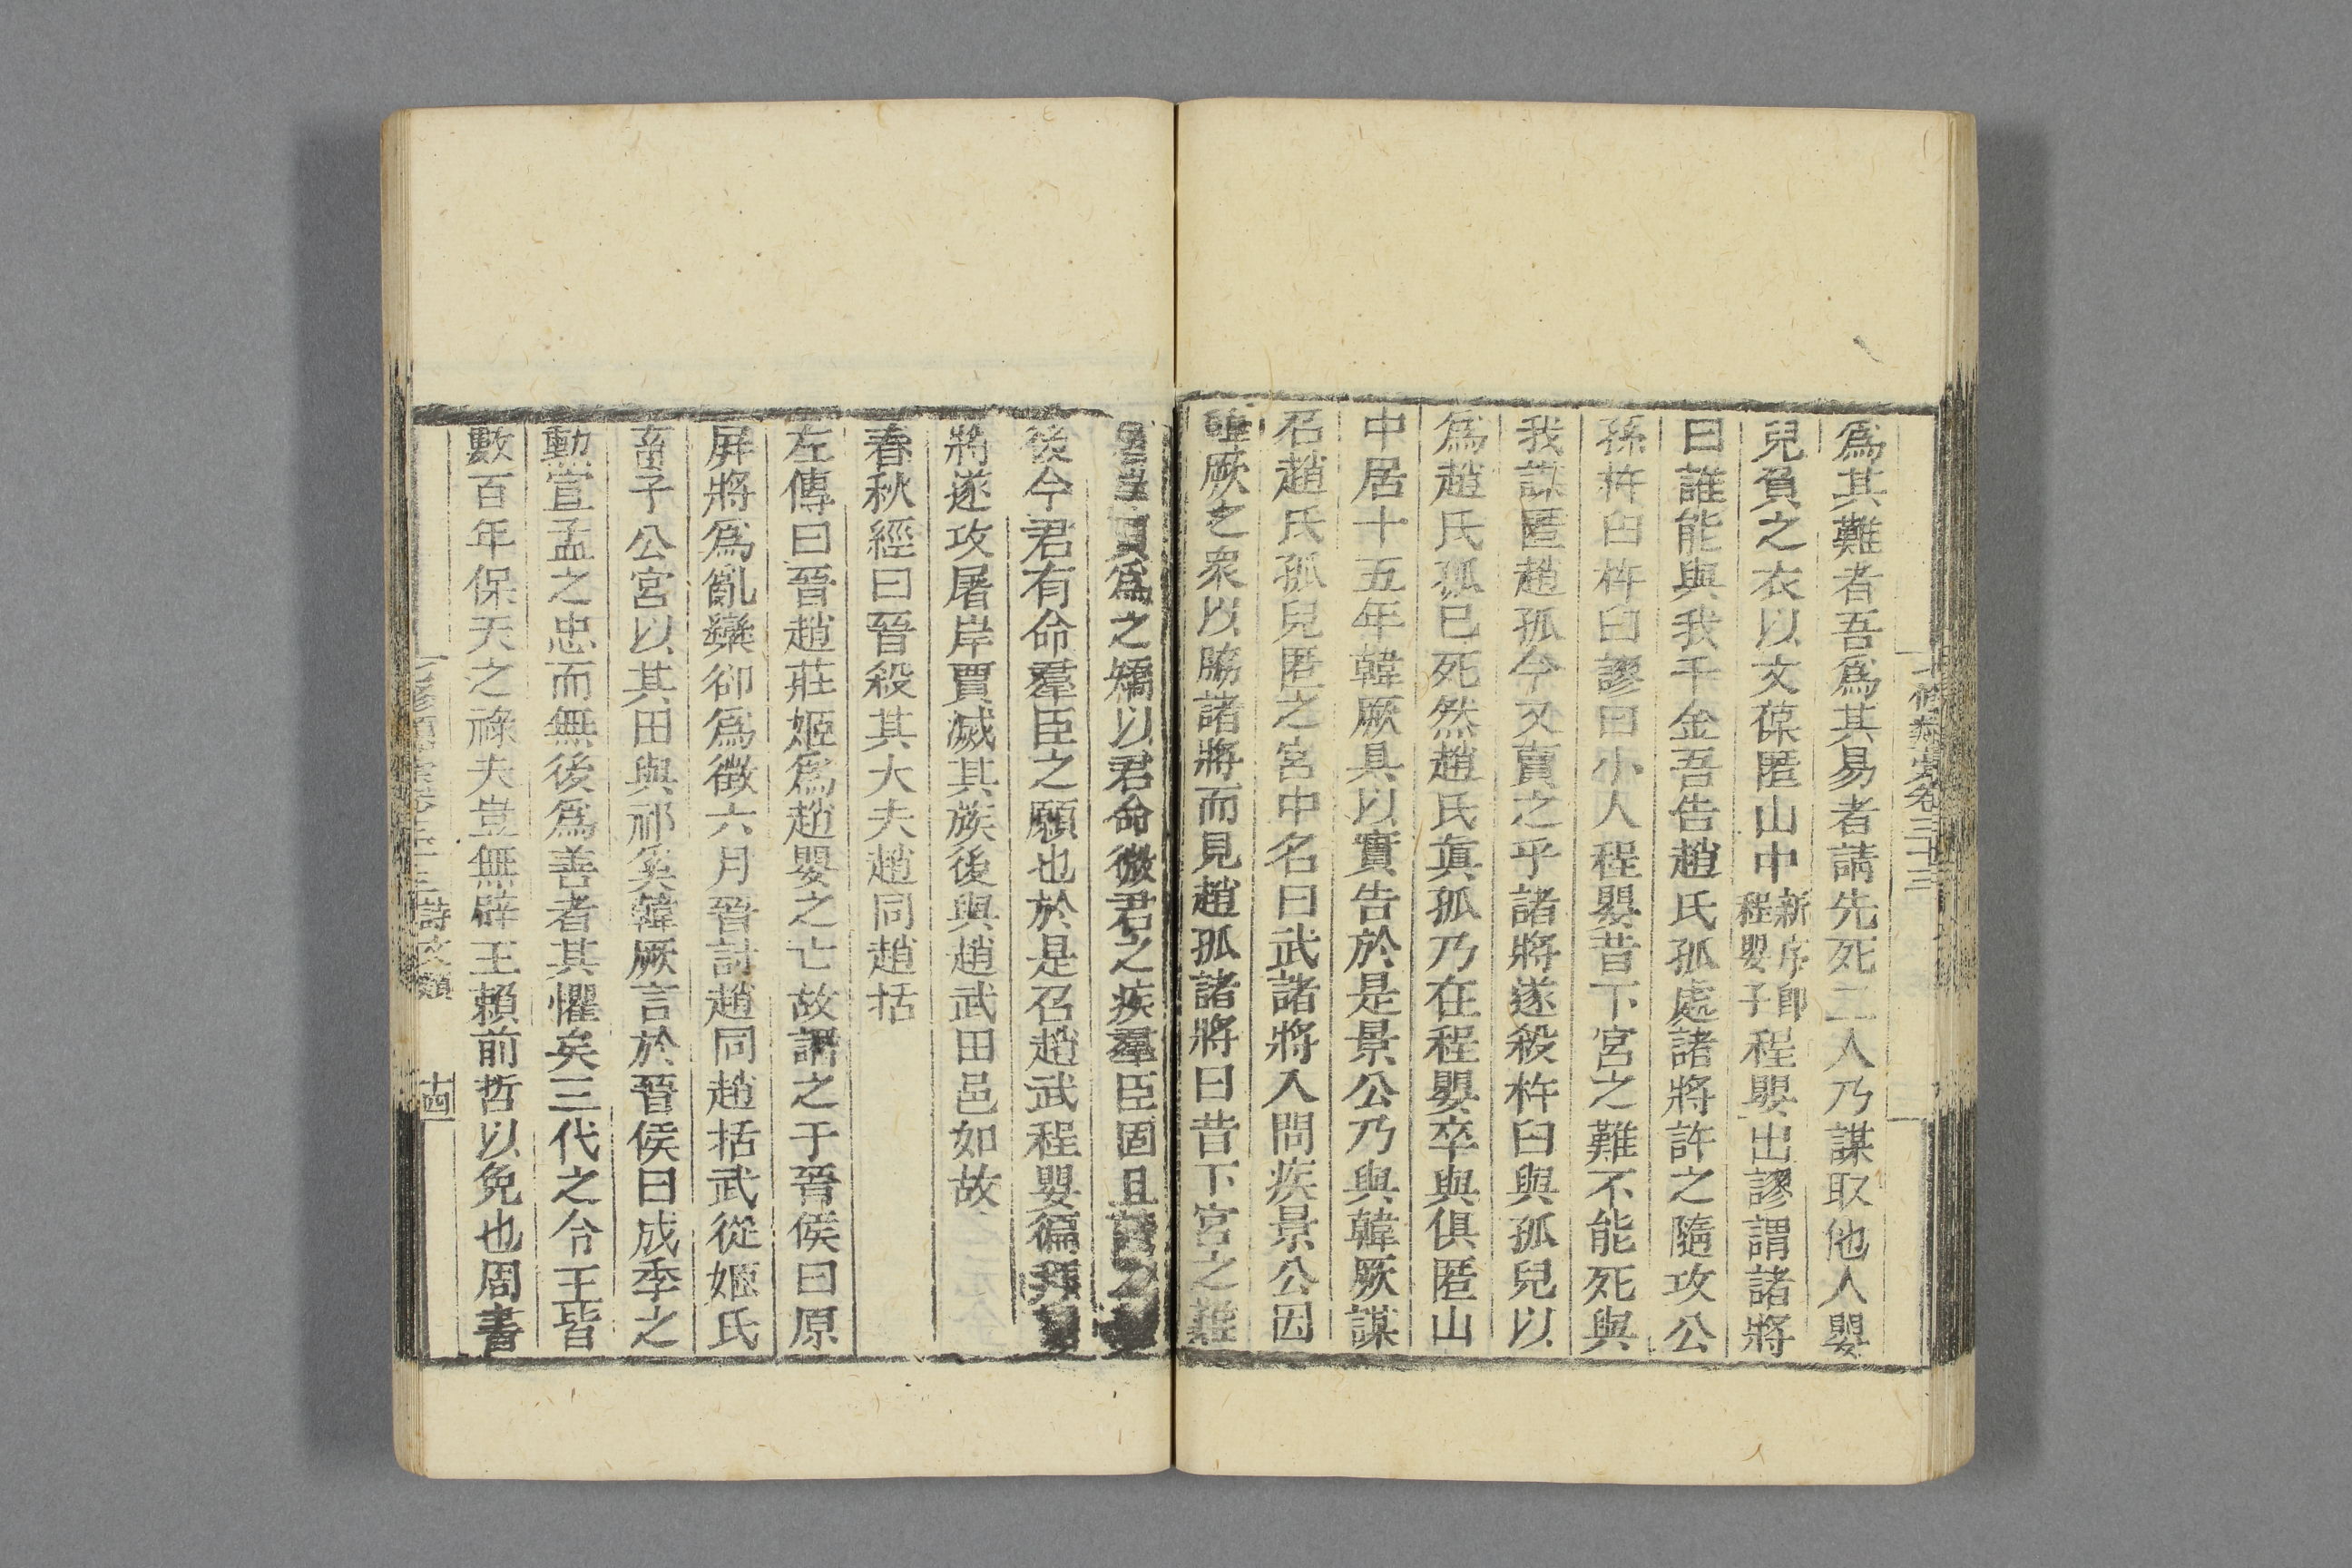 七修類稾卷二十三
爲其難者吾爲其易者請先死二人乃謀取他人嬰
兒負之衣以文葆匿山中新序卽程嬰子程嬰出謬謂諸將
曰誰能與我千金吾告趙氏孤處諸將許之隨攻公
孫杵臼杵臼謬曰小人程嬰昔下宮之難不能死與
我謀匿趙孤今又賣之乎諸將遂殺杵臼與孤兒以
爲趙氏孤已死然趙氏眞孤乃在程嬰卒與俱匿山
中居十五年韓厥具以實告於是景公乃與韓厥謀
召趙氏孤兒匿之宮中名曰武諸將入問疾景公因
韓厥之衆以脇諸將而見趙孤諸將曰昔下宮之難
賈爲之矯以君命微君之疾羣臣固且
後今君有命羣臣之願也於是召趙武程嬰徧拜
將遂攻屠岸賈滅其族後與趙武田邑如故
春秋經曰晉殺其大夫趙同趙括
左傳曰晉趙莊姬爲趙嬰之亡故譖之于晉侯曰原
屏將爲亂欒卻爲徵六月晉討趙同趙括武從姬氏
畜子公宮以其田與祁奚韓厥言於晉侯曰成季之
勳宣孟之忠而無後爲善者其懼矣三代之令王皆
數百年保天之祿夫豈無辟王賴前哲以免也周書
七修類稾卷二十三 詩文類
十四